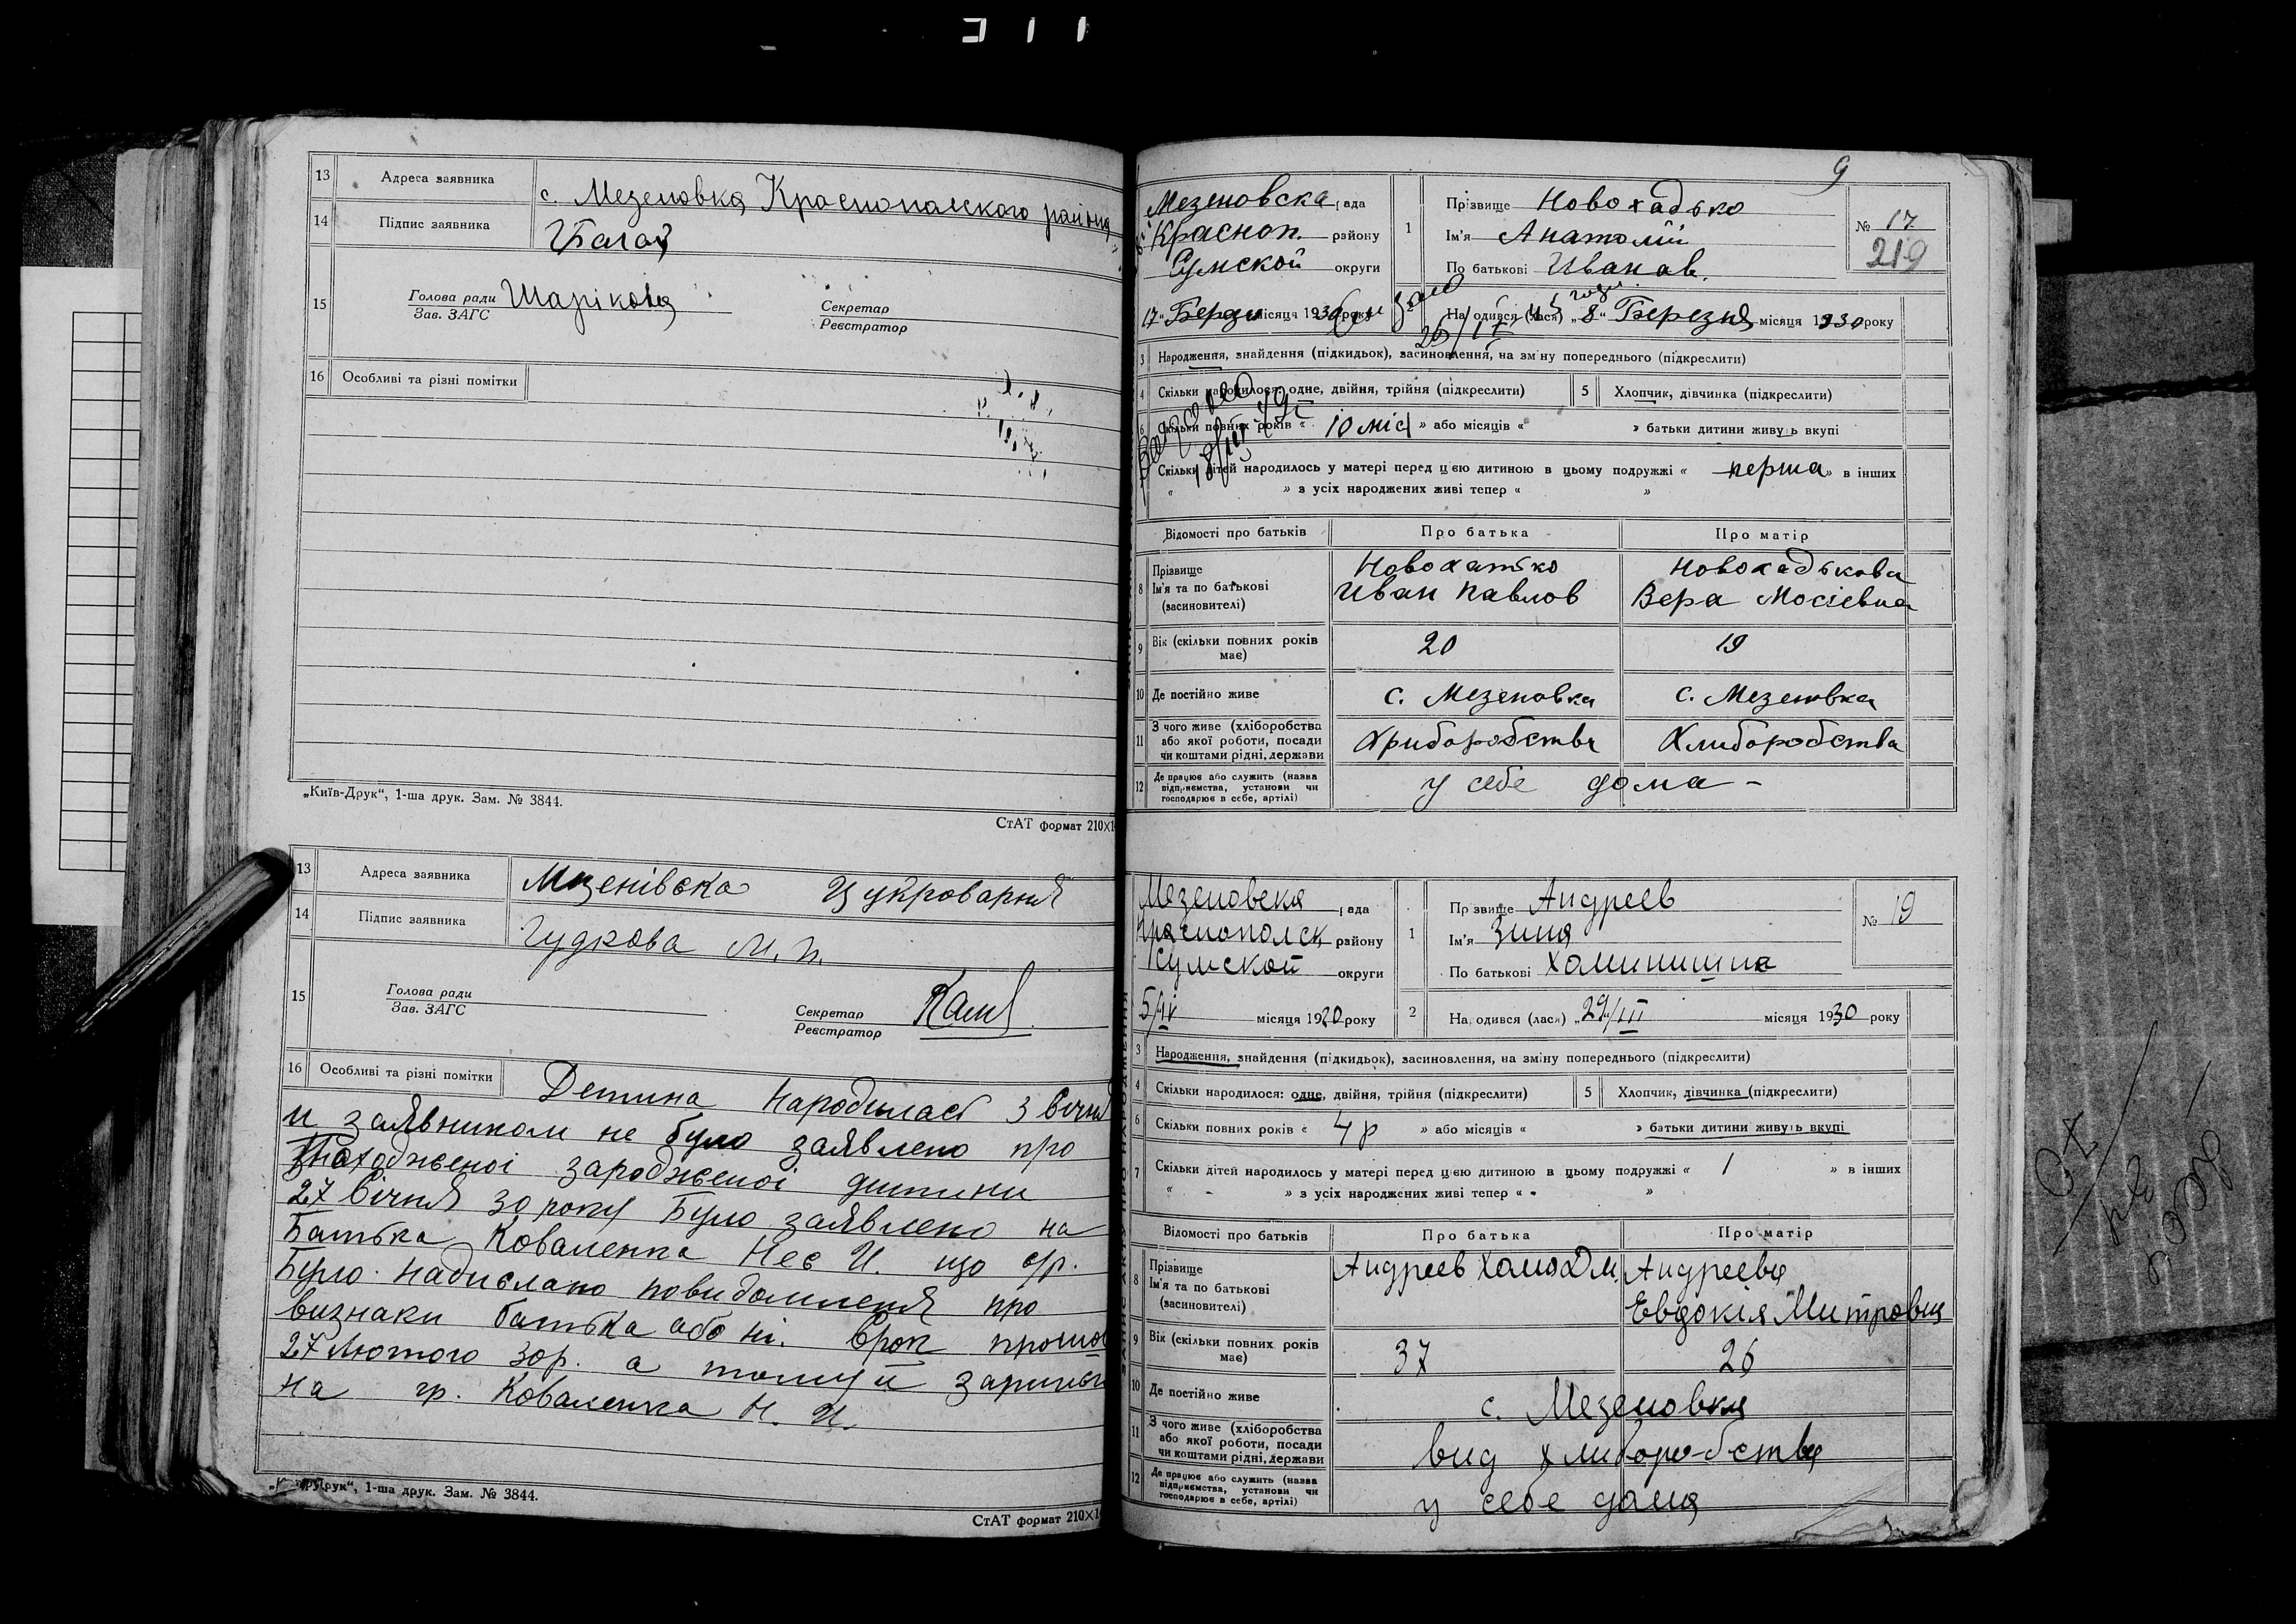 13 Адреса заявника с. Мезеновка Краснопольского района
14 Підпис заявника
15 Голова ради Шарікова Секретар
Зав. ЗАГС Реєстратор
16 Особливі та різні помітки
„Київ-Друк“, 1-ша друк. Зам. № 3844.
СтАТ формат 210×1
13 Адреса заявника Мезенівска Цукроварня
14 Підпис заявника Гудкова М. П.
15 Голова ради Секретар
Зав. ЗАГС Реєстратор
16 Особливі та різні помітки Детина народилась 3 Січня
и заявником не було заявлено про
зародженої дитини
27 Січня 30 року Було заявлено на
Батька Коваленка И. що
Було надислано повидомленя про
визнаки батька або ні. Срок
27 Лютого 30р. а тому й
на гр. Коваленка Н. И.
Друк“, 1-ша друк. Зам. № 3844.
СтАТ формат 210×1
9
Мезеновска рада 1 Прізвище Новохадько № 17
Красноп. району Ім'я Анатолій 219
Сумской округи По батькові Иванов.
17 місяця 1930 року На одився (лася) „8“ Березня місяця 1930 року
3 Народження, знайдення (підкидьок), засиновлення, на зміну попереднього (підкреслити)
4 Скільки народилося: одне, двійня, трійня (підкреслити) 5 Хлопчик, дівчинка (підкреслити)
6 Скільки повних років « 10 міс » або місяців « » батьки дитини живуть вкупі
Скільки дітей народилось у матері перед цією дитиною в цьому подружжі « перша » в інших
« » з усіх народжених живі тепер « »
Відомості про батьків Про батька Про матір
8 Прізвище Новохатько Новохадькова
Ім'я та по батькові Иван Павлов Вера Мосіевна
(засиновителі)
9 Вік (скільки повних років має) 20 19
10 Де постійно живе с. Мезеновка с. Мезеновка
11 З чого живе (хліборобства або якої роботи, посади чи коштами рідні, держави Хлиборобства
12 Де працює або служить (назва підприємства, установи чи господарює в себе, артілі) у себе дома –
Мезеновска рада 1 Прізвище Андреев № 19
Краснопольск району Ім'я Зина
Сумской округи По батькові
5/IV місяця 1930 року 2 На одився (лася) „29“/III місяця 1930 року
3 Народження, знайдення (підкидьок), засиновлення, на зміну попереднього (підкреслити)
4 Скільки народилося: одне, двійня, трійня (підкреслити) 5 Хлопчик, дівчинка (підкреслити)
6 Скільки повних років « 4 р » або місяців « » батьки дитини живуть вкупі
7 Скільки дітей народилось у матері перед цією дитиною в цьому подружжі « 1 » в інших
« - » з усіх народжених живі тепер « »
Відомості про батьків Про батька Про матір
8 Прізвище Андреев Хома Дм. Андреева
Ім'я та по батькові Евдокія Митровна
(засиновителі)
9 Вік (скільки повних років має) 37 26
10 Де постійно живе с. Мезеновка
11 З чого живе (хліборобства або якої роботи, посади чи коштами рідні, держави вид хлиборобства
12 Де працює або служить (назва підприємства, установи чи господарює в себе, артілі) у себе дома